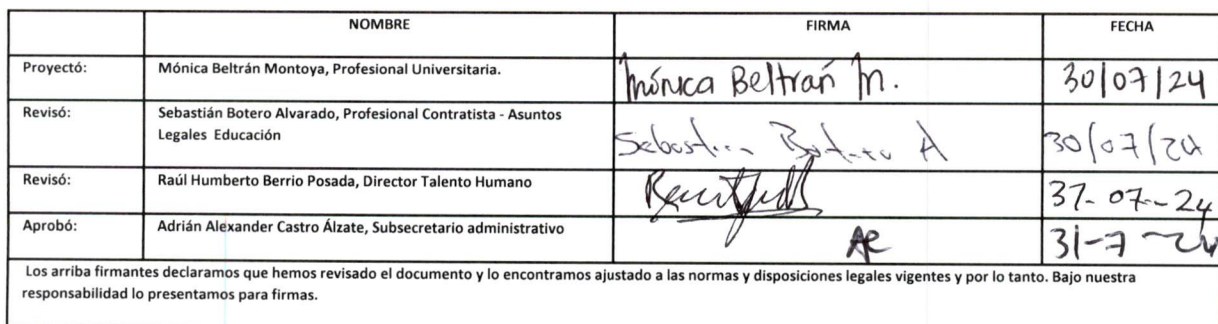 NOMBRE FIRMA FECHA
Proyectó: Mónica Beltrán Montoya, Profesional Universitaria. Mónica Beltrán M. 30/07/24
Revisó: Sebastián Botero Alvarado, Profesional Contratista - Asuntos
Legales Educación Sebastián Botero A 30/07/24
Revisó: Raúl Humberto Berrio Posada, Director Talento Humano 31-07-24
Aprobó: Adrián Alexander Castro Álzate, Subsecretario administrativo 31-7-24
Los arriba firmantes declaramos que hemos revisado el documento y lo encontramos ajustado a las normas y disposiciones legales vigentes y por lo tanto. Bajo nuestra
responsabilidad lo presentamos para firmas.